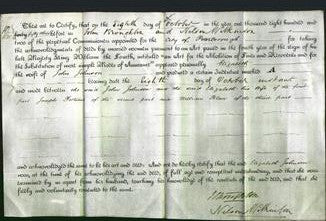 These are to Certify, that on the Eighth day of October in the year one thousand eight hundred and
forty before us John Brompton and Nelson Wilkinson
two of the perpetual Commissioners appointed for the for taking
the acknowledgments of deeds by married women pursuant to an Act passed in the fourth year of the reign of his
late Majesty King William the Fourth, intituled "an Act for the Abolition of Fines and Recoveries and for
the Substitution of more simple Modes of Assurance" appeared personally Elizabeth
the wife of John Johnson and produced a certain Indenture marked A
bearing date the Eighth day of October instant
and made between the said John Johnson and the said Elizabeth his wife of the first
part Joseph of the second part and William of the third part
and acknowledged the same to be her act and deed: And we do hereby certify that the said Elizabeth Johnson
was at the time of her acknowledging the said deed, of full age and competent understanding, and that she was
examined by us apart from her husband, touching her knowledge of the contents of the said deed, and that she
freely and voluntarily consented to the same.
Nelson Wilkinson